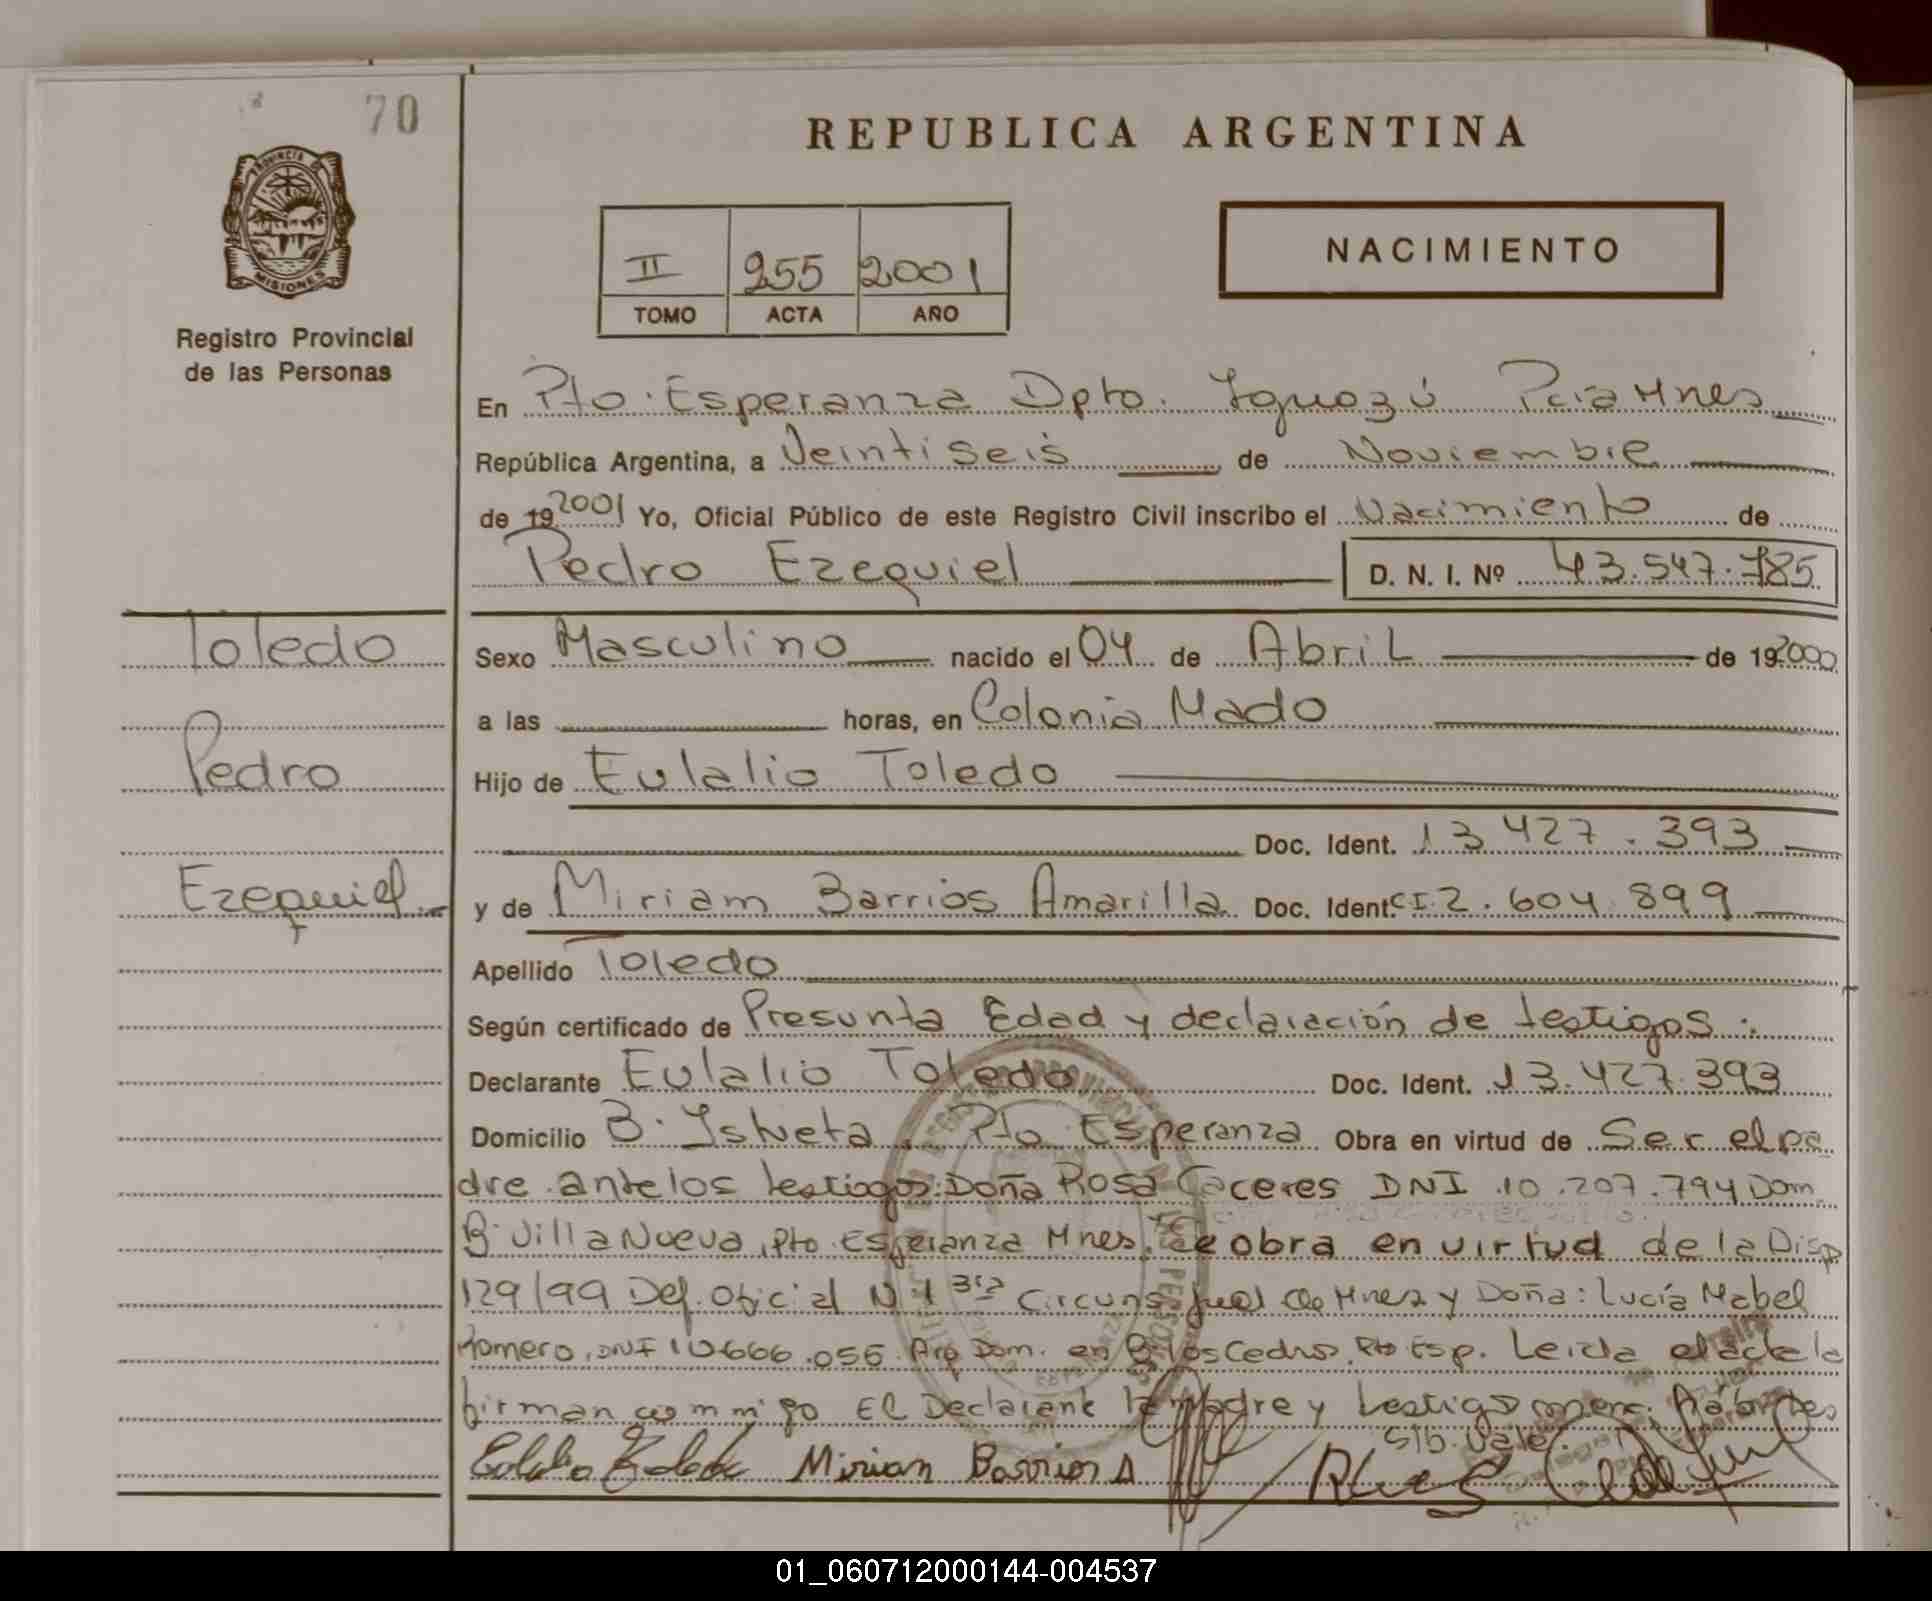 70
REPUBLICA ARGENTINA
PROVINCIA DE MISIONES
Registro Provincial
de las Personas
II 255 2001
TOMO ACTA AÑO
NACIMIENTO
En Pto. Esperanza Dpto. Iguazú Pcia Mnes
República Argentina, a Veintiseis de Noviembre
de 19 2001 Yo, Oficial Público de este Registro Civil inscribo el Nacimiento de
Pedro Ezequiel D. N. I. Nº 43.547.785
Toledo
Pedro
Ezequiel
Sexo Masculino nacido el 04 de Abril de 19 2000
a las horas, en Colonia Mado
Hijo de Eulalio Toledo
Doc. Ident. 13 427.393
y de Miriam Barrios Amarilla Doc. Ident. CI. 2.604.899
Apellido Toledo
Según certificado de Presunta Edad y declaración de testigos.
Declarante Eulalio Toledo Doc. Ident. 13.427.393
Domicilio B. Pto Esperanza Obra en virtud de Ser el pa
dre ante los testigos: Doña Rosa Caceres DNI 10.207.794 Dom.
B. Villa Nueva, Pto Esperanza Mnes. Se obra en virtud de la Disp
129/99 Def. Oficial N 1 3ra Circuns Jud de Mnes y Doña: Lucía Mabel
Romero, DNI 10666.056 Arg Dom. en B. los Cedros Pto Esp. Leida el acta la
firman conmigo El Declarante la Madre y testigos
S/b. Vale.
Mirian Barrios A
01_060712000144-004537